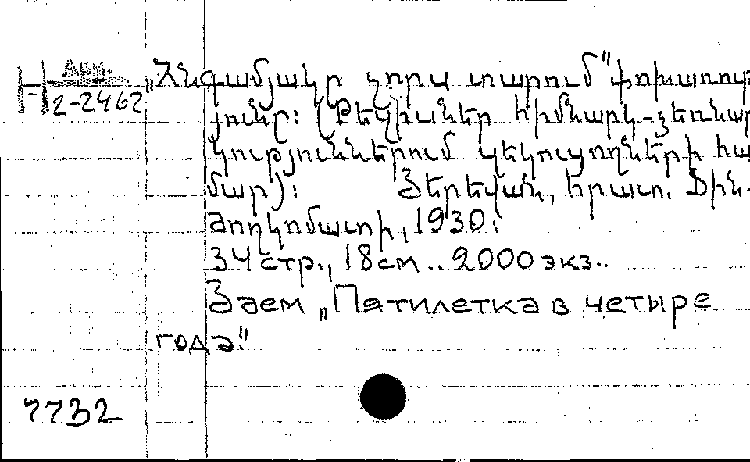 Арм.
2-2462
„Հնգամյակը չորս տարում" փոխառու
յունը։ (Թեզիսներ հիմնարկ-ձեռնար
կություններում զեկուցողների հա
մար)։ Յերեվան, հրատ. Ֆին-
ժողկոմատի, 1930։
34 стр., 18 см.. 2000 экз..
Заем „Пятилетка в четыре
года"
7732